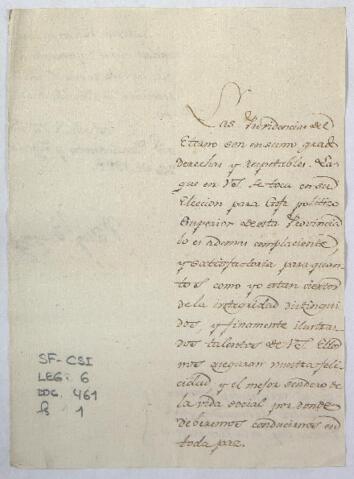 Las Providencias del
Eterno son en sumo grado
derechas y respetables. La
que en Vd. se toca en su
Eleccion para Gefe politico
Superior de esta Provincia
lo es ademas complaciente,
y satisfactoria para quan-
tos como yo estan ciertos
de la integridad distingui-
dos, y finamente ilustra-
dos talentos de Vd. Ellos
nos aseguran nuestra feli-
cidad y el mejor sendero de
la vida social por donde
deberemos conducirnos en
toda paz.
SF-CSI
LEG: 6
DOC. 461
f. 1